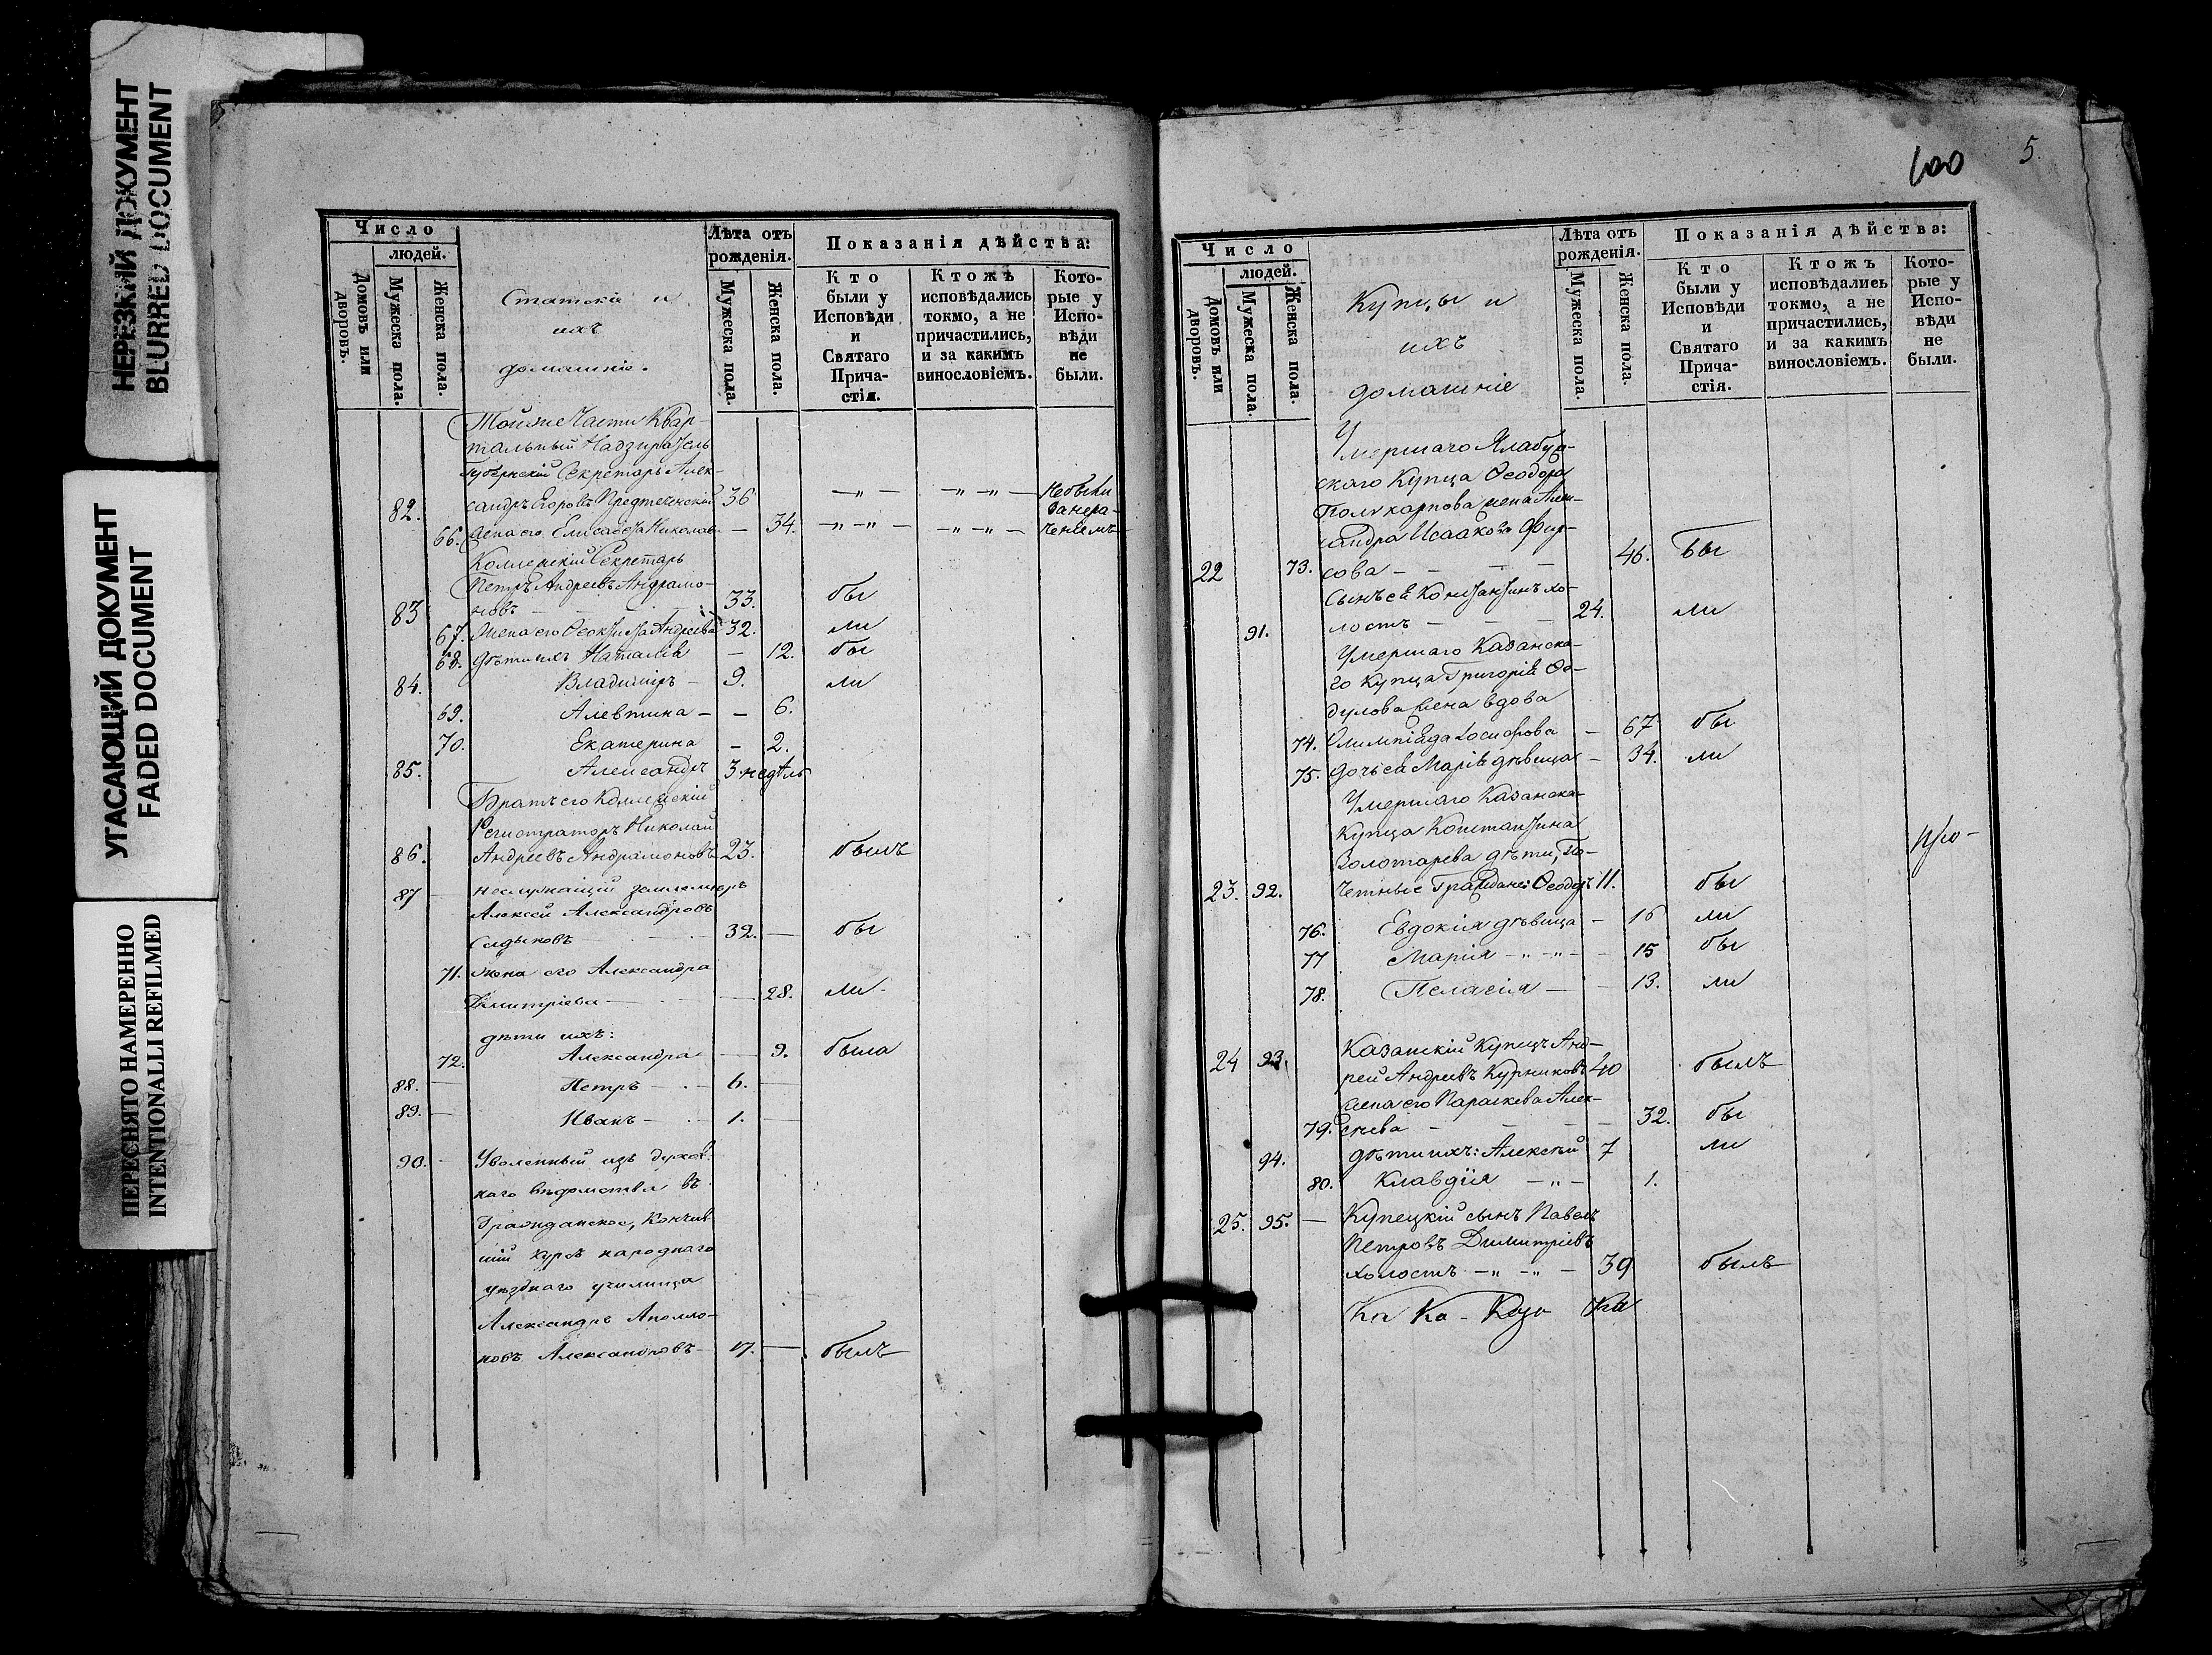 НЕРЕЗКИЙ ДОКУМЕНТ
BLURRED DOCUMENT
УГАСАЮЩИЙ ДОКУМЕНТ
FADED DOCUMENT
ПЕРЕСНЯТО НАМЕРЕННО
INTENTIONALLI REFILMED
Число
людей.
Домовъ или дворовъ.
Мужеска пола.
Женска пола.
Статскіе и
ихъ
домашніе.
Лѣта отъ
рожденія.
Мужеска пола.
Женска пола.
Показанія дѣйства:
Кто
были у
Исповѣди
и
Святаго
Прича-
стія.
Ктожъ
исповѣдались
токмо, а не
причастились,
и за какимъ
винословіемъ.
Кото-
рые у
Испо-
вѣди
не
были.
Тойже Части Квар-
тальный Надзиратель
Губернскій Секретарь Алек-
82. сандръ Егоровъ Предтеченскій 36 небыли
66. жена его Елисавета Николаев. — 34.
Коллежскій Секретарь
Петръ Андреевъ Андрамо-
83 новъ — 33. бы
67. Жена его Ѳеоктиста Андреева 32. ли
68. дѣти ихъ Наталія — 12. бы
84. Владиміръ — 9. ли
69. Алевтина — — 6.
70. Екатерина — 2.
85. Александръ 3 недѣль
Братъ его Коллежскій
Регистраторъ Николай
86. Андреевъ Андрамоновъ 23. былъ
87 — неслужащій землемѣръ
Алексей Александровъ
Садыковъ — 32. — бы
71. Жена его Александра
Димитріева — — 28. ли
дѣти ихъ:
72. Александра — 9. была
88. — Петръ — 6. —
89. — Иванъ — 1. —
90. — Уволенный изъ духов-
наго вѣдомства въ
Гражданское, Кончив
шій курсъ народнаго
уѣзднаго училища
Александръ Аполло-
новъ Александровъ — 17. — былъ
100 5.
Число
людей.
Домовъ или дворовъ.
Мужеска пола.
Женска пола.
Купцы и
ихъ
домашніе
Лѣта отъ
рожденія.
Мужеска пола.
Женска пола.
Показанія дѣйства:
Кто
были у
Исповѣди
и
Святаго
Прича-
стія.
Ктожъ
исповѣдались
токмо, а не
причастились,
и за какимъ
винословіемъ.
Кото-
рые у
Испо-
вѣди
не
были.
Умершаго Ялабуж-
скаго Купца Ѳеодора
Поликарпова жена Алек-
сандра Исаакова Фир-
22 73. сова — — — 46. бы
Сынъ ея Константинъ хо-
91. лостъ — — — 24. ли
Умершаго Казанска-
го Купца Григорія Ѳе-
дулова жена вдова
74. Олимпіада Іосифова — 67 бы
75. дочь ея Марія дѣвица — 34. ли
Умершаго Казанска-
Купца Константина
Золотарева дѣти, По-
23. 92. четные Граждане: Ѳеодоръ 11. бы
76. Евдокія дѣвица — 16 ли
77 Марія — „ — „ — 15 бы
78. Пелагія — — 13. ли
Казанскій Купецъ Анд-
24 93. рей Андреевъ Курниковъ 40 былъ
жена его Параскева Алек-
79. сѣева — — — — 32. бы
94. дѣти ихъ: Алексѣй 7 ли
80. Клавдія — „ — 1.
25. 95. — Купецкій сынъ Павелъ
Петровъ Димитріевъ
холостъ — „ — „ — 39 былъ